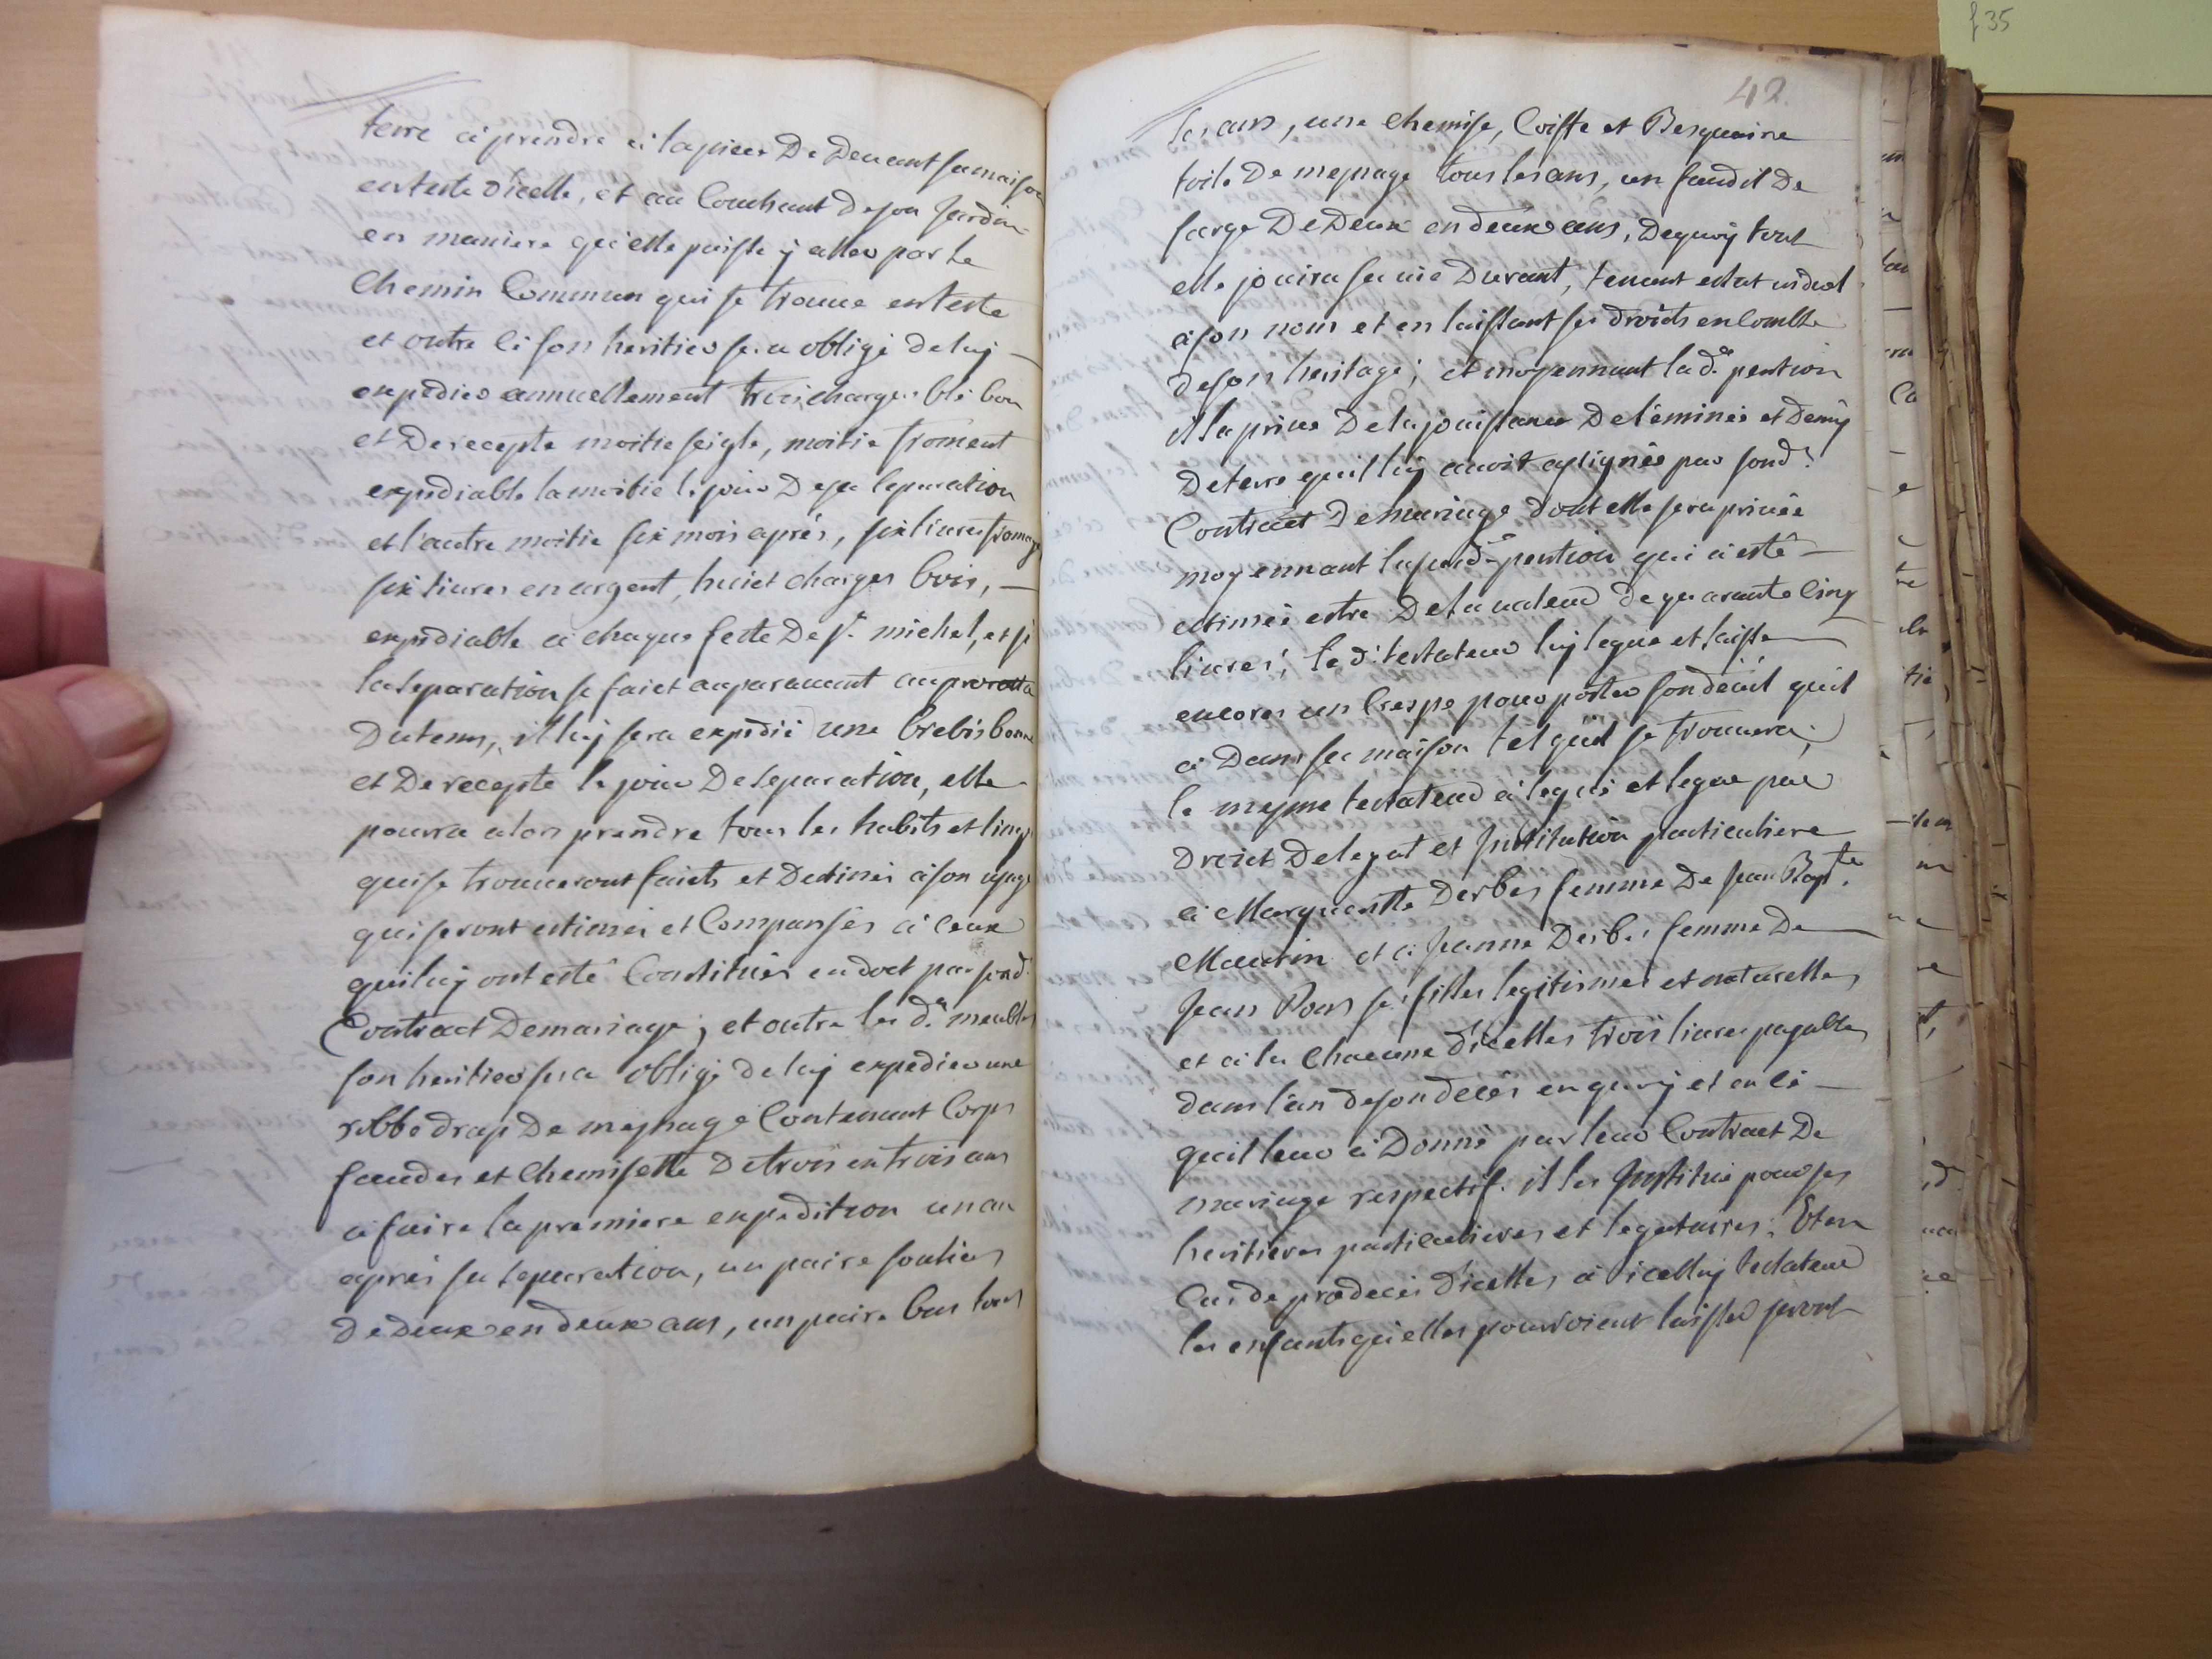 f 35
terre a prendre a la piece De Devant sa maison
en teste d'icelle, et au Couchant de son Jardin
en maniere qu'elle puisse y aller par le
Chemin Commun qui se trouve en teste
et outre ce son heritier sera obligé de luy
expedier annuellement trois charges blé bon
et De recepte moitié seigle, moitié froment
expediable la moitié le jour De sa separation
et l'autre moitié six mois aprés, six livres fromage
six livres en argent, huict charges bois,
expediable a chaque feste De st. michel, et si
la separation se faict auparavent au prorata
Du tems, il luy sera expedié une brebis bonne
et De recepte le jour De separation, elle
pourra alors prendre tous les habits et linge
qui se trouveront faicts et Destinés a son usage
qui seront estimés et Compansés a ceux
qui luy ont esté Constitués en dot par sond.
Contract De mariage; et outre les d.s meubles
son heritier sera obligé de luy expedier une
robbe drap De mesnage Contenant Corps
faudes et Chemisette De trois en trois ans
a faire la premiere expedition un an
aprés sa separation, un paire soulies
De Deux en deux ans, un paire bas tous
42.
les ans, une chemise, Coiffe et Besquaine
toile De mesnage tous les ans, un faudil De
sarge De Deux en deux ans, De quoy tout
elle jouira sa vie Durant, tenant estat viduel
a son nom et en laissant ses droits en Comble
de son heritage; et moyennant lad.e pention
il la prive De la jouissance De l'éminée et Demy
De terre qu'il luy avoit assignée par sond.
Contract De mariage dont elle sera privée
moyennant lasusd.e pention qui a esté
estimée estre De la valeur de quarante Cinq
livres; le d. testateur luy legue et laisse
encores un Crespe pour porter son deüil qu'il
a Dans sa maison tel qu'il se trouvera;
le mesme testateur a legué et legue par
Droict De legat et Institution particuliere
a Marguerite Derbes femme De Jean Bap.te
Mautin et a Jeanne Derbes femme De
Jean Pons ses filles legitimes et naturelles
et a la Chacune d'icelles trois livres payables
dans l'an de son décés en quoy et en ce
qu'il leur a Donné par leur Contract De
mariage respectif. il les Institue pour ses
heritieres particulieres et legataires; Et en
Cas de prædeces d'icelles a icelluy testateur
les enfants qu'elles pourroient laisser seront